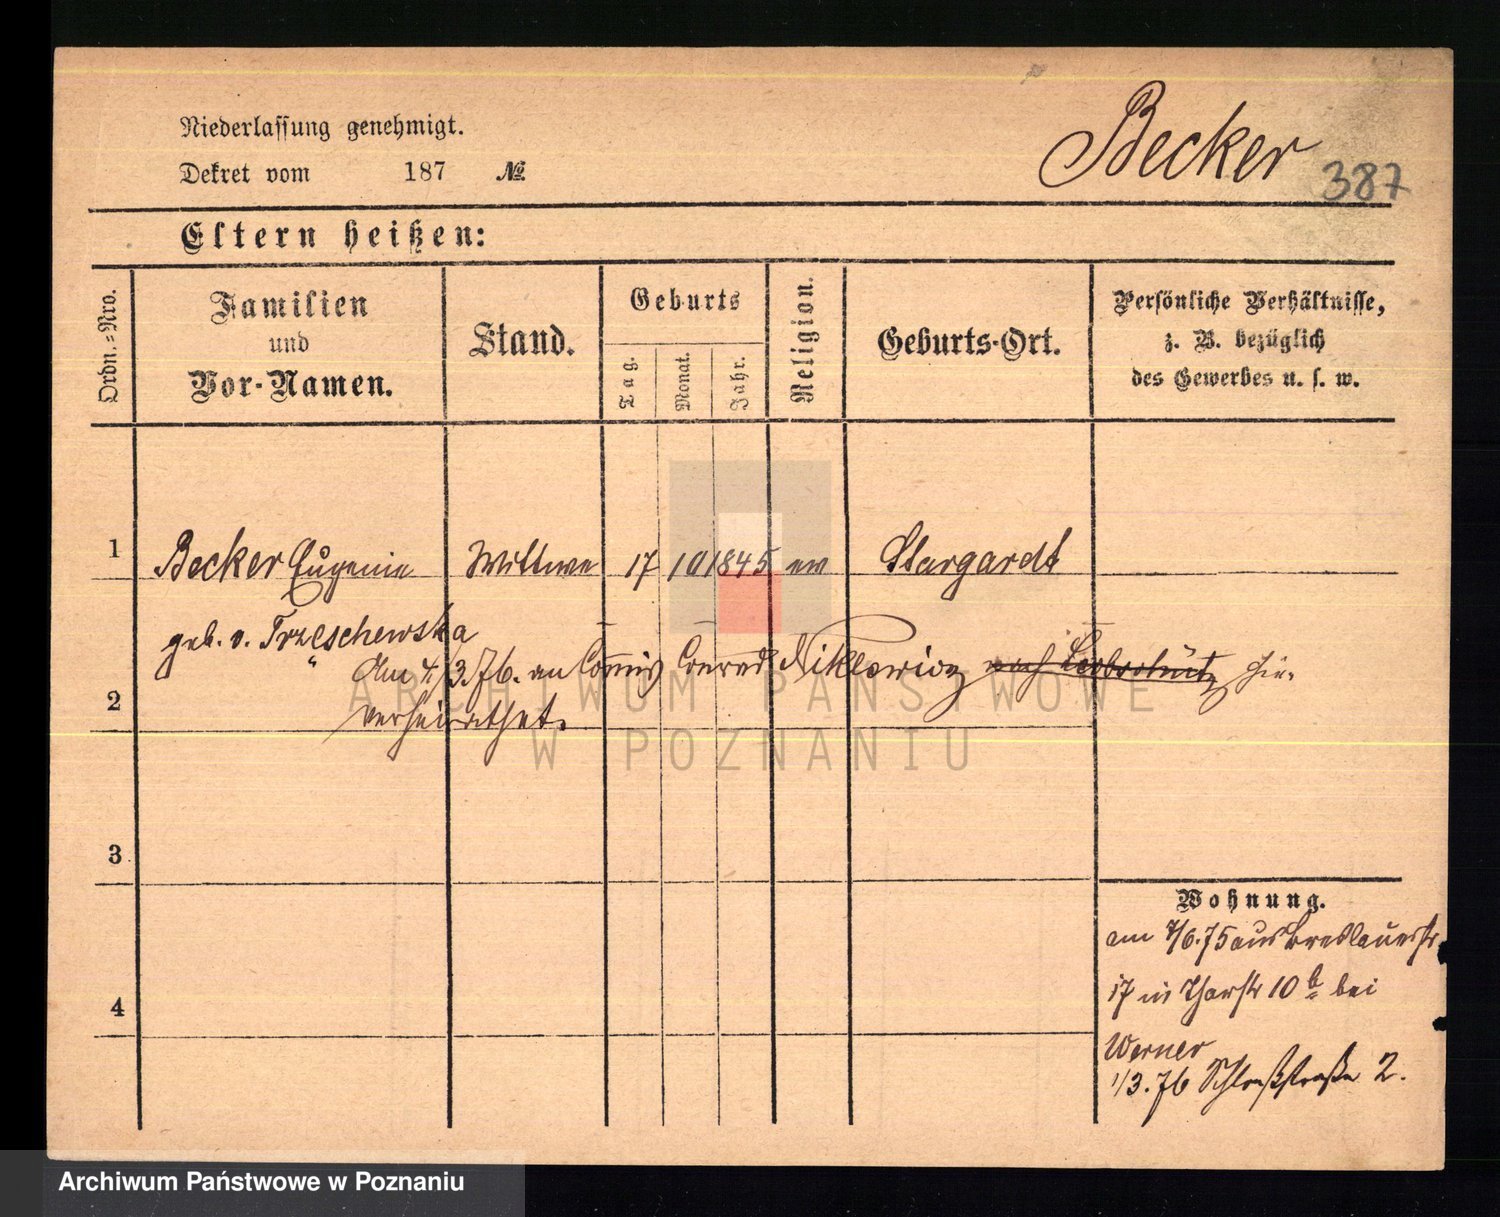 Becker
387
Niederlassung genehmigt.
Dekret vom 187 №
Eltern heißen:
Ordn.=Nro.
Familien
und
Vor-Namen.
Stand.
Geburts
Tag.
Monat.
Jahr.
Religion.
Geburts-Ort.
Persönliche Verhältnisse,
z. B. bezüglich
des Gewerbes u. s. w.
1 Becker Eugenie Wittwe 17 10 1845 ev Stargardt
geb. v. Trzeschewska
Am 4/3.76. an Commis Conrad Niklewicz nach hier
2 verheirathet.
ARCHIWUM PAŃSTWOWE
W POZNANIU
3
4
Wohnung.
am 7/6.75 aus Breslauerstr
17 in 10 b bei
Werner
1/3.76 Schloßstraße 2.
Archiwum Państwowe w Poznaniu